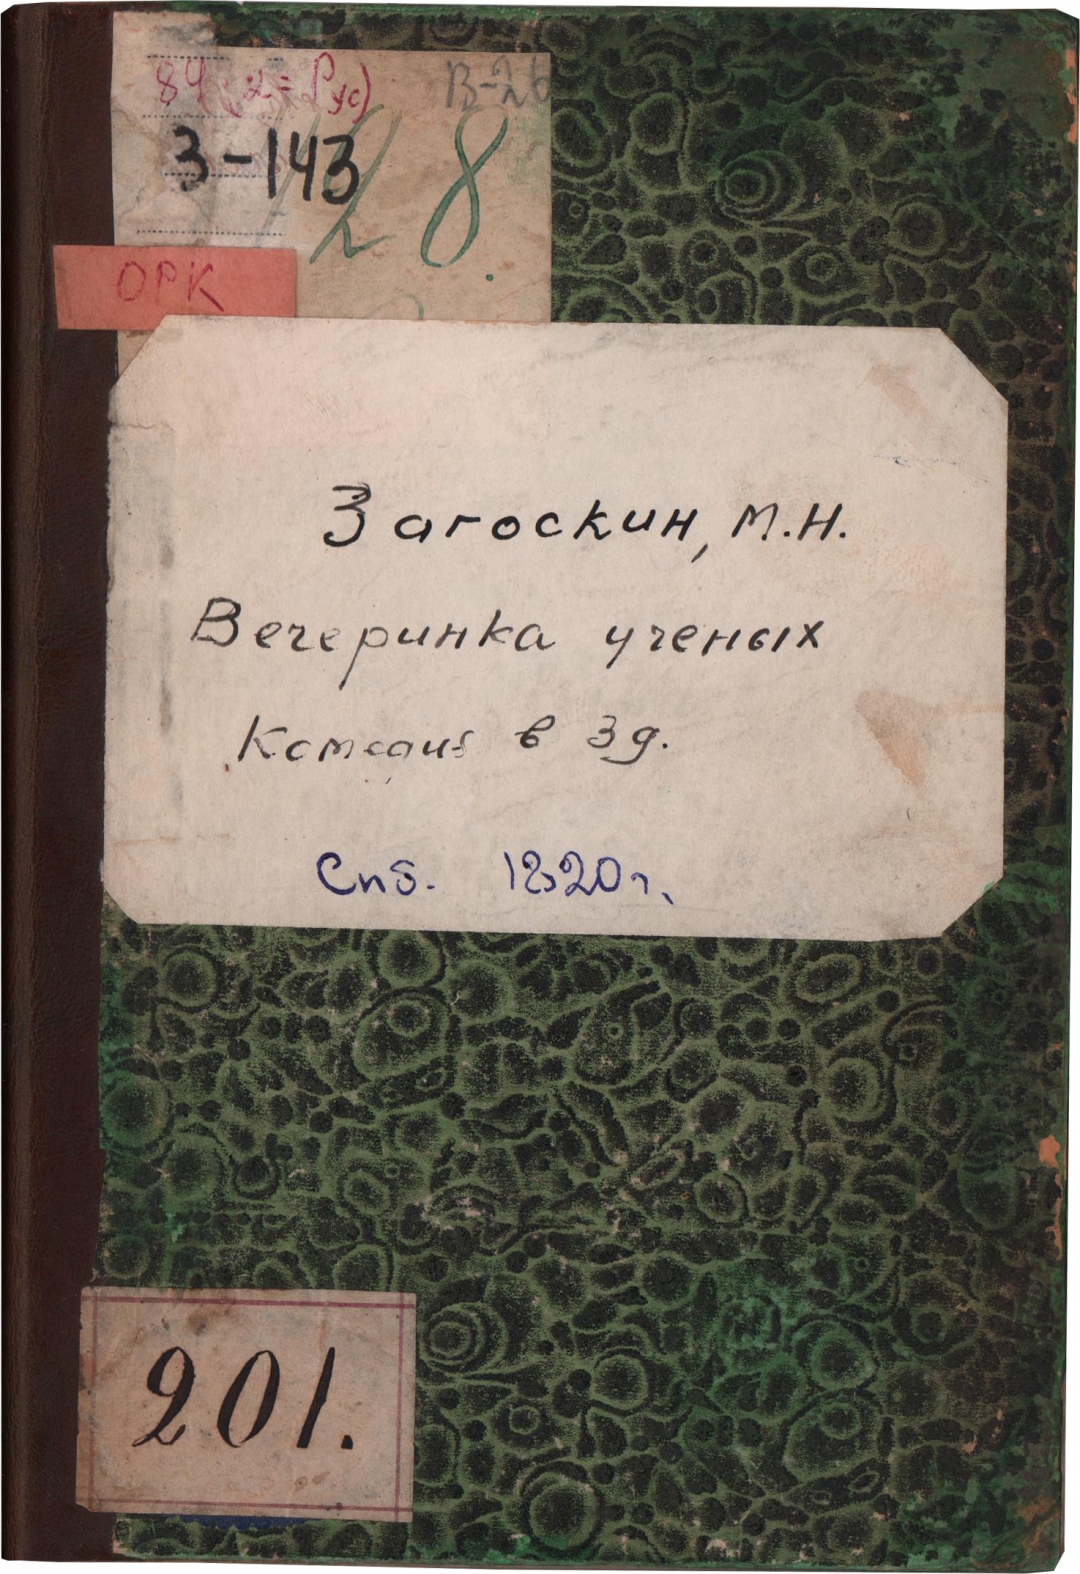 84(2=Рус)
В-26
З-143
28.
ОРК
Загоскин, М.Н.
Вечеринка ученых
Комедия в 3 д.
Спб. 1820 г.
201.